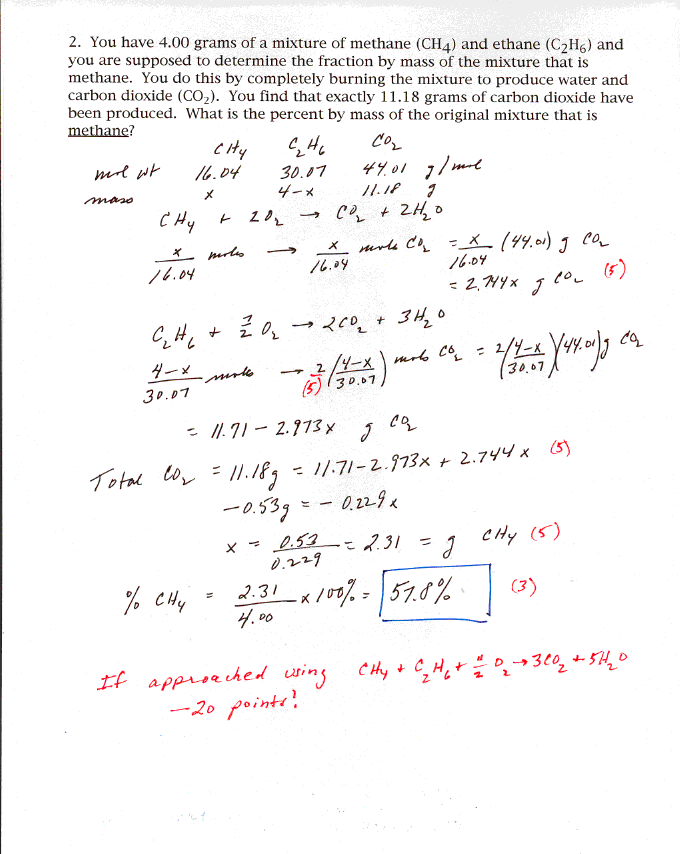 2. You have 4.00 grams of a mixture of methane (CH4) and ethane (C2H6) and
you are supposed to determine the fraction by mass of the mixture that is
methane. You do this by completely burning the mixture to produce water and
carbon dioxide (CO2). You find that exactly 11.18 grams of carbon dioxide have
been produced. What is the percent by mass of the original mixture that is
methane?
CH4 C2H6 CO2
mol wt 16.04 30.07 44.01 g/mol
mass x 4-x 11.18 g
CH4 + 2O2 → CO2 + 2H2O
x/16.04 moles → x/16.04 mole CO2 = x/16.04 (44.01) g CO2
= 2.744x g CO2 (5)
C2H6 + 7/2 O2 → 2CO2 + 3H2O
4-x/30.07 moles → 2(4-x/30.07) mols CO2 = 2(4-x/30.07)(44.01)g CO2
(5)
= 11.71 - 2.973x g CO2
Total CO2 = 11.18g = 11.71-2.973x + 2.744x (5)
-0.53g = -0.229x
x = 0.53/0.229 = 2.31 = g CH4 (5)
% CH4 = 2.31/4.00 x 100% = 57.8% (3)
If approached using CH4 + C2H6 + 11/2 O2 → 3CO2 + 5H2O
-20 points!